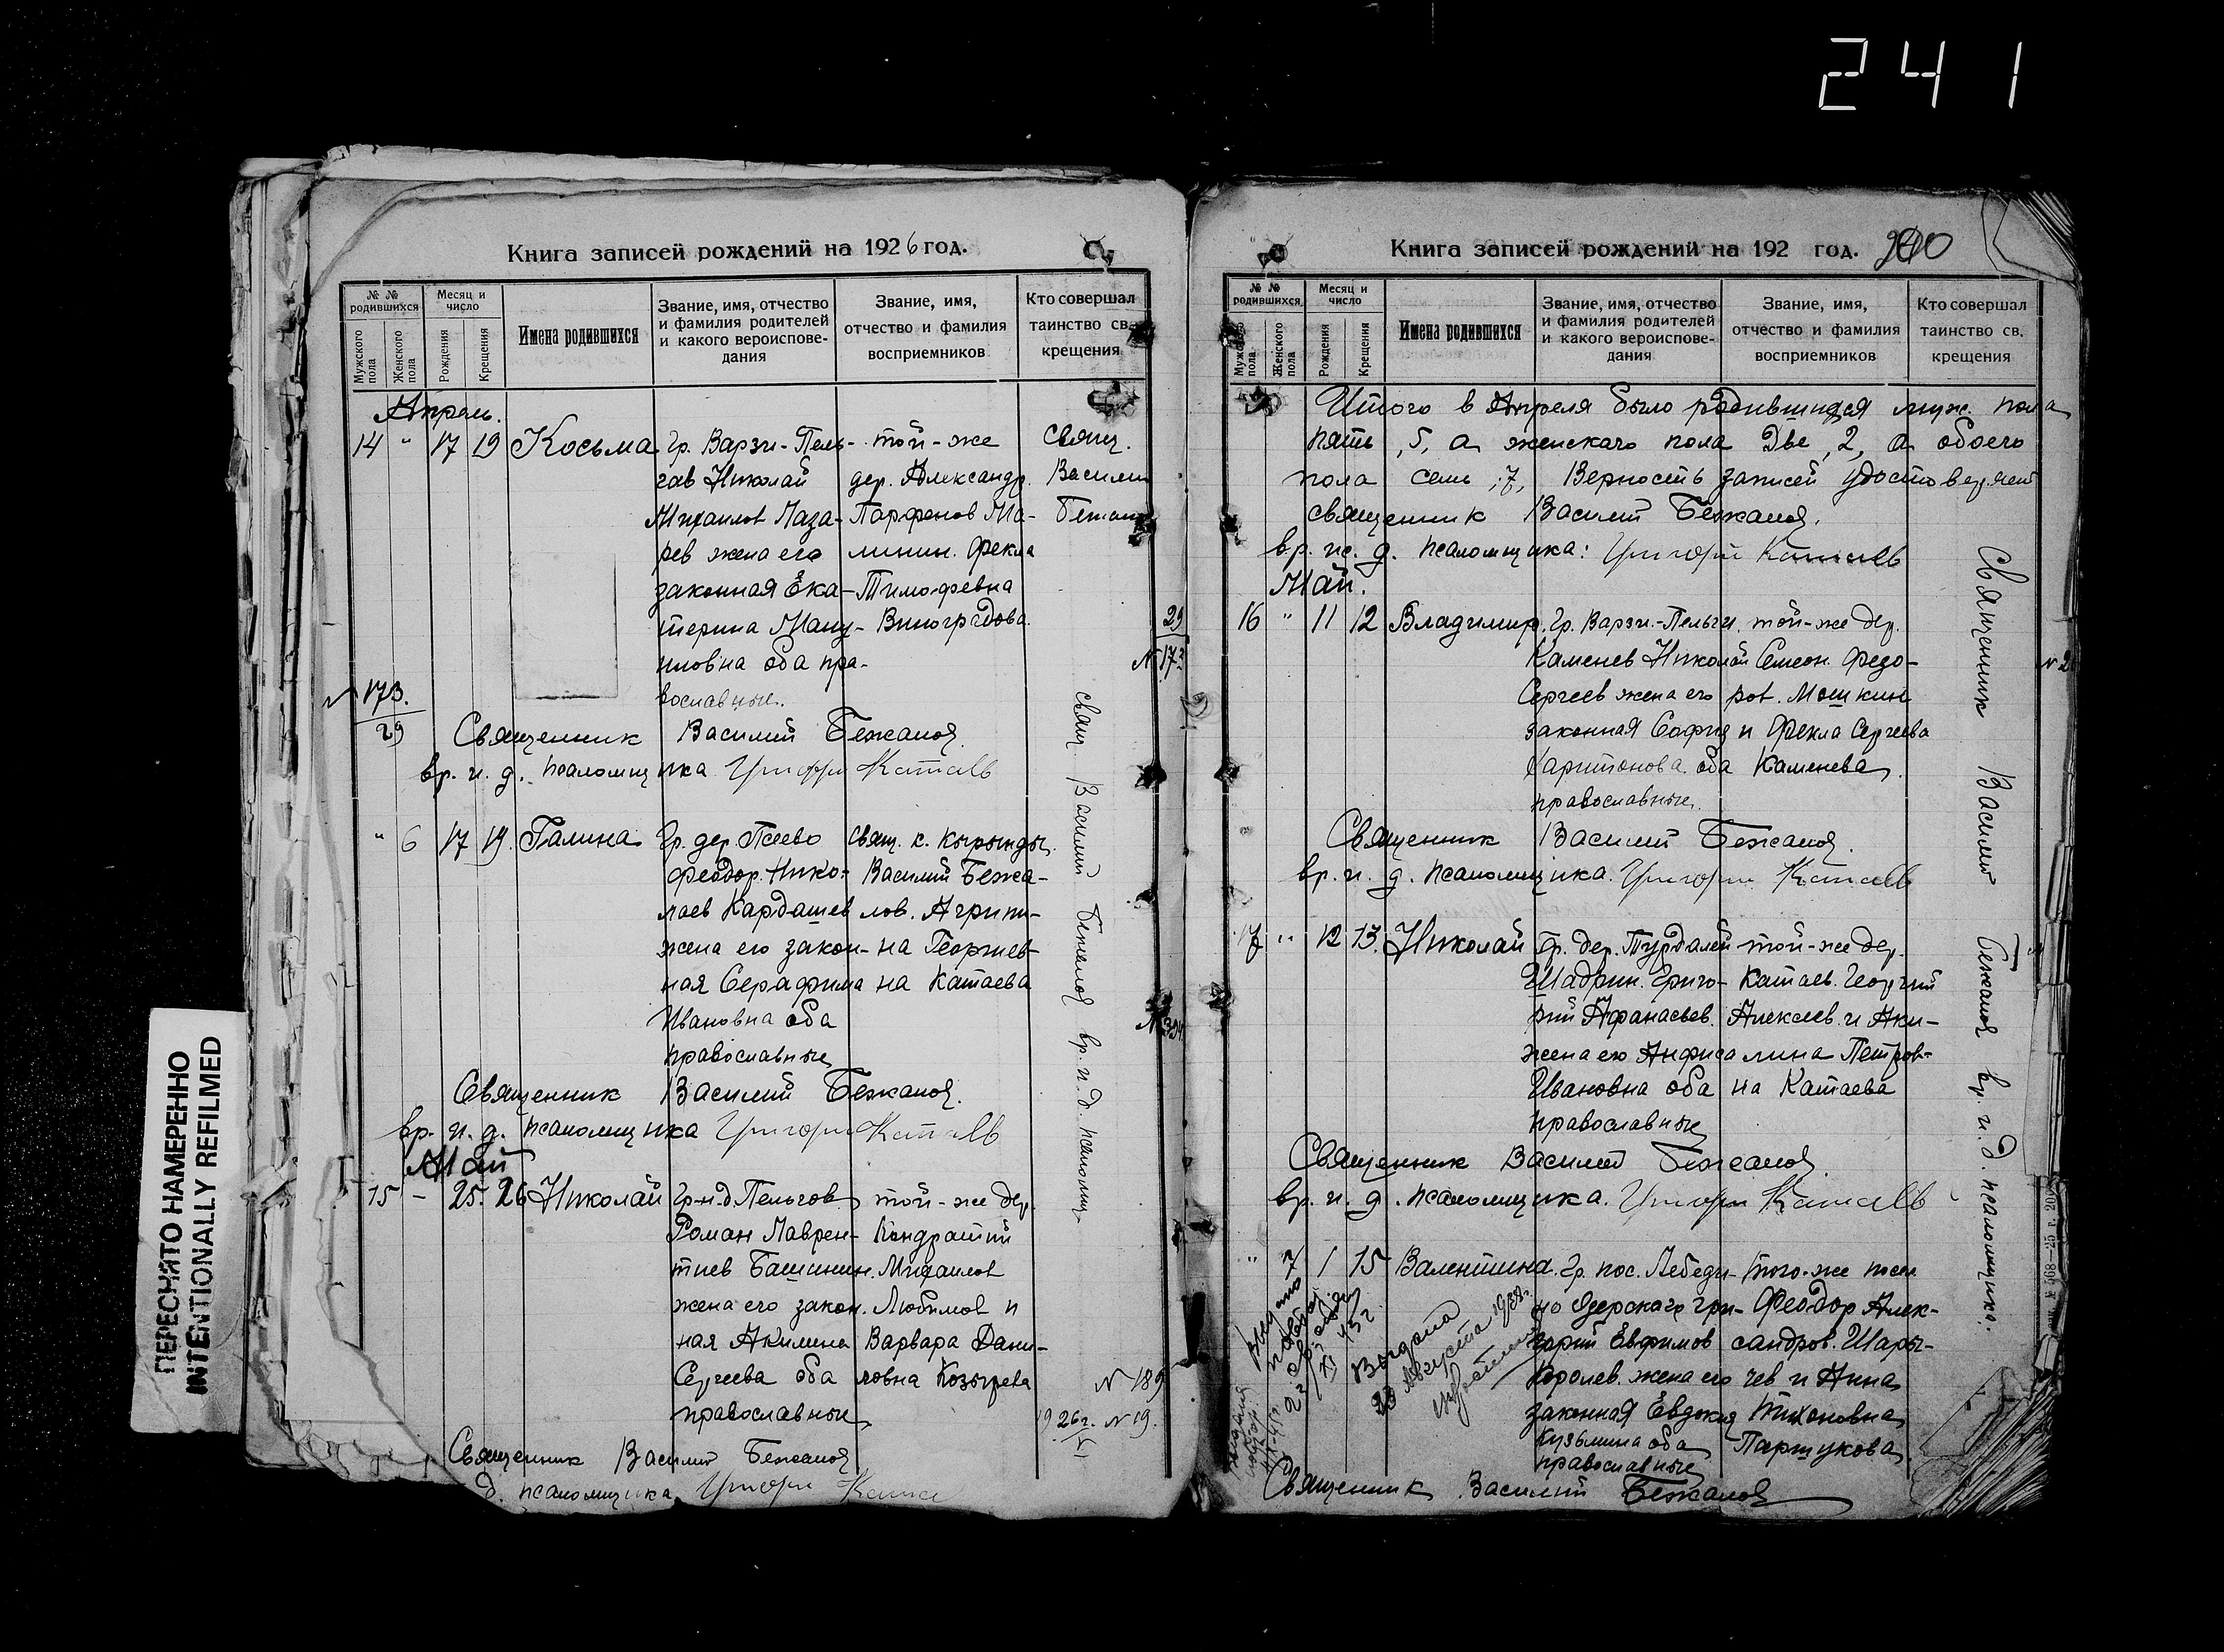 241
Книга записей рождений на 1926 год.
№ № родившихся
Мужского пола
Женского пола
Месяц и число
Рождения
Крещения
Имена родившихся
Звание, имя, отчество и фамилия родителей и какого вероиспове-дания
Звание, имя, отчество и фамилия восприемников
Кто совершал таинство св. крещения
Апрель.
14 " 17 19 Косьма Гр. Варзи-Пель- той-же свящ.
гов Николай дер. Александр. Василий
Михаилов Лаза- Парфенов Ма-
рев жена его линин. Фекла
законная Ека- Тимофевна
терина Ману- Виноградова.
иловна оба пра-
вославные.
N 173.
29
Священник Василий Бежанов.
вр. и. д. псаломщика Григорий Катаев
" 6 17 19. Галина Гр. дер. Псеево свящ. с. Кырынды.
Феодор. Нико- Василий Бежа-
лаев Кардашев нов. Агрипи-
жена его закон- на Георгиев-
ная Серафима на Катаева
Ивановна оба
православные
Священник Василий Бежанов.
вр. и. д. псаломщика Григорий Катаев
Май
15 - 25. 26 Николай Гр-н д. Пельгов той-же дер.
Роман Лаврен- Кондратий
тиев Башинин. Михаилов
жена его закон. Любимов и
ная Акилина Варвара Дани-
Сергеева оба ловна Козырева
православные
N 189
1926 г. N 19.
Священник Василий Бежанов
д. псаломщика Григорий
свящ. Василий Бежанов вр. и. д. псаломщ.
29
N 173
ПЕРЕСНЯТО НАМЕРЕННО
INTENTIONALLY REFILMED
Книга записей рождений на 192 год. 240
№ № родившихся
Мужского пола
Женского пола
Месяц и число
Рождения
Крещения
Имена родившихся
Звание, имя, отчество и фамилия родителей и какого вероиспове-дания
Звание, имя, отчество и фамилия восприемников
Кто совершал таинство св. крещения
Итого в Апреля было родившихся муж. пола
пять, 5, а женскаго пола Две, 2, а обоего
пола семь, 7, Верность записей удостоверяет
священник Василий Бежанов.
вр. ис. д. псаломщика: Григорий Катаев
Май.
16 " 11 12 Владимир. Гр. Варзи-Пельги. той-же дер.
Каменев Николай Симеон. Федо-
Сергеев жена его ров. Мошкин
законная София и Фекла Сергеева
Харитонова. оба Каменева
православные.
Священник Василий Бежанов.
вр. и. д. псаломщика. Григорий Катаев
17 " 12 13. Николай Гр. дер. Турдалей той-же дер.
Шадрин. Григо- Катаев. Георгий
рий Афанасьев. Алексеев. и Аки-
жена его Анфиса лина Петров-
Ивановна оба на Катаева
православные
Священник Василий Бежанов.
вр. и. д. псаломщика. Григорий Катаев
" 7 1 15 Валентина. Гр. пос. Лебеди- того-же посел.
но Озерскаго Гри- Феодор Алек-
горий Евфимов сандров. Шары-
Королев. жена его чев и Анна
законная Евдокия Тихоновна
Кузьмина оба Паршукова.
православные
Священник Василий Бежанов
Выдана
23 августа 1938 г.
Священник Василий Бежанов вр. и. д. псаломщика.